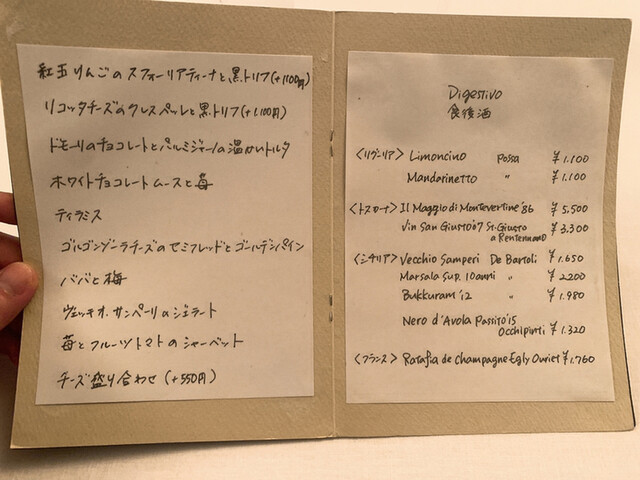 紅玉りんごのスフォーリアティーナと黒トリフ(+1100円)
リコッタチーズのクレスペッレと黒トリフ(+1,100円)
ドモーリのチョコレートとパルミジャーノの温かいトルタ
ホワイトチョコレートムースと苺
ティラミス
ゴルゴンゾーラチーズのセミフレッドとゴールデンパイン
ババと梅
ヴェッキオ.サンペーリのジェラート
苺とフルーツトマトのシャーベット
チーズ盛り合わせ(+550円)
Digestivo
食後酒
<リグーリア> Limoncino Possa ¥1.100
Mandarinetto 〃 ¥1.100
<トスカーナ> Il Maggio di Montevertine '86 ¥5.500
Vin San Giusto '07 St. Giusto a Rentennano ¥3.300
<シチリア> Vecchio Samperi De Bartoli ¥1.650
Marsala Sup. 10anni 〃 ¥2200
Bukkuram '12 〃 ¥1.980
Nero d'Avola Passito '15 Occhipinti ¥1.320
<フランス> Ratafia de Champagne Egly Ouriet ¥1.760